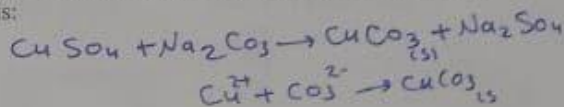 s:
CuSO₄ + Na₂CO₃ → CuCO₃(s) + Na₂SO₄
Cu²⁺ + CO₃²⁻ → CuCO₃(s